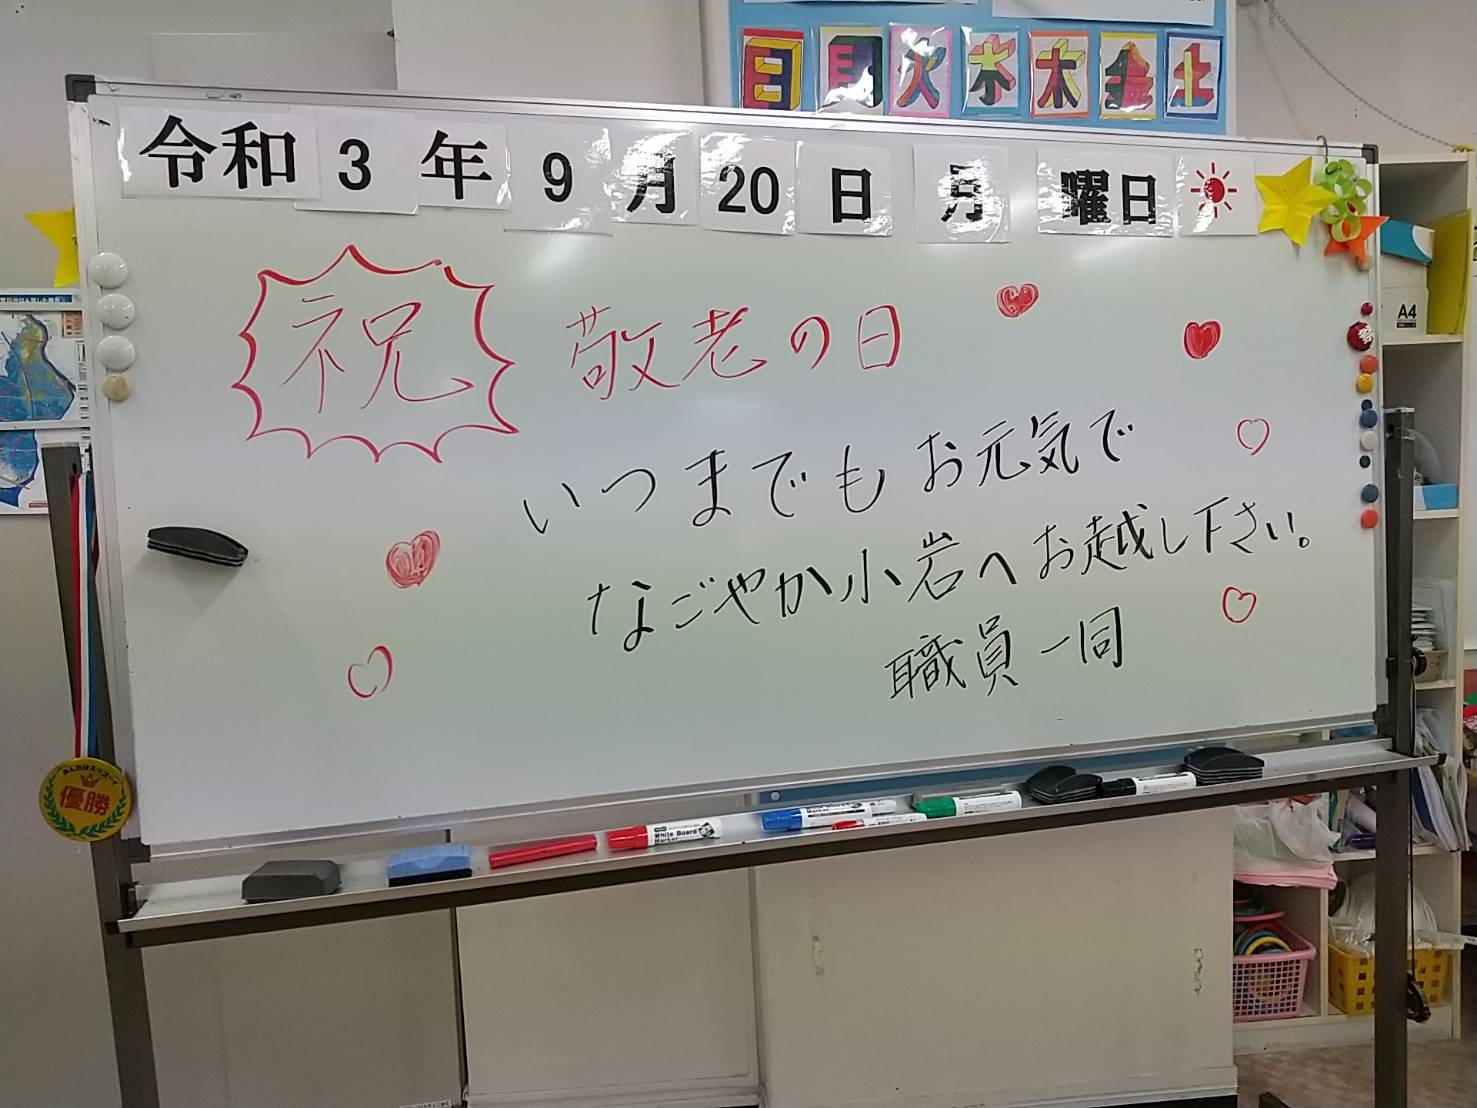 日月火水木金土
令和3年9月20日月曜日
祝 敬老の日
いつまでもお元気で
なごやか小岩へお越し下さい。
職員一同
A4
優勝
White Board Marker